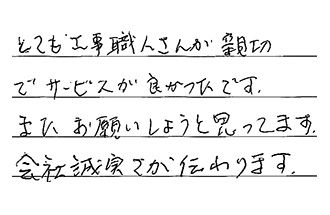 とても工事職人さんが親切
でサービスが良かったです.
またお願いしようと思ってます.
会社誠実さが伝わります.